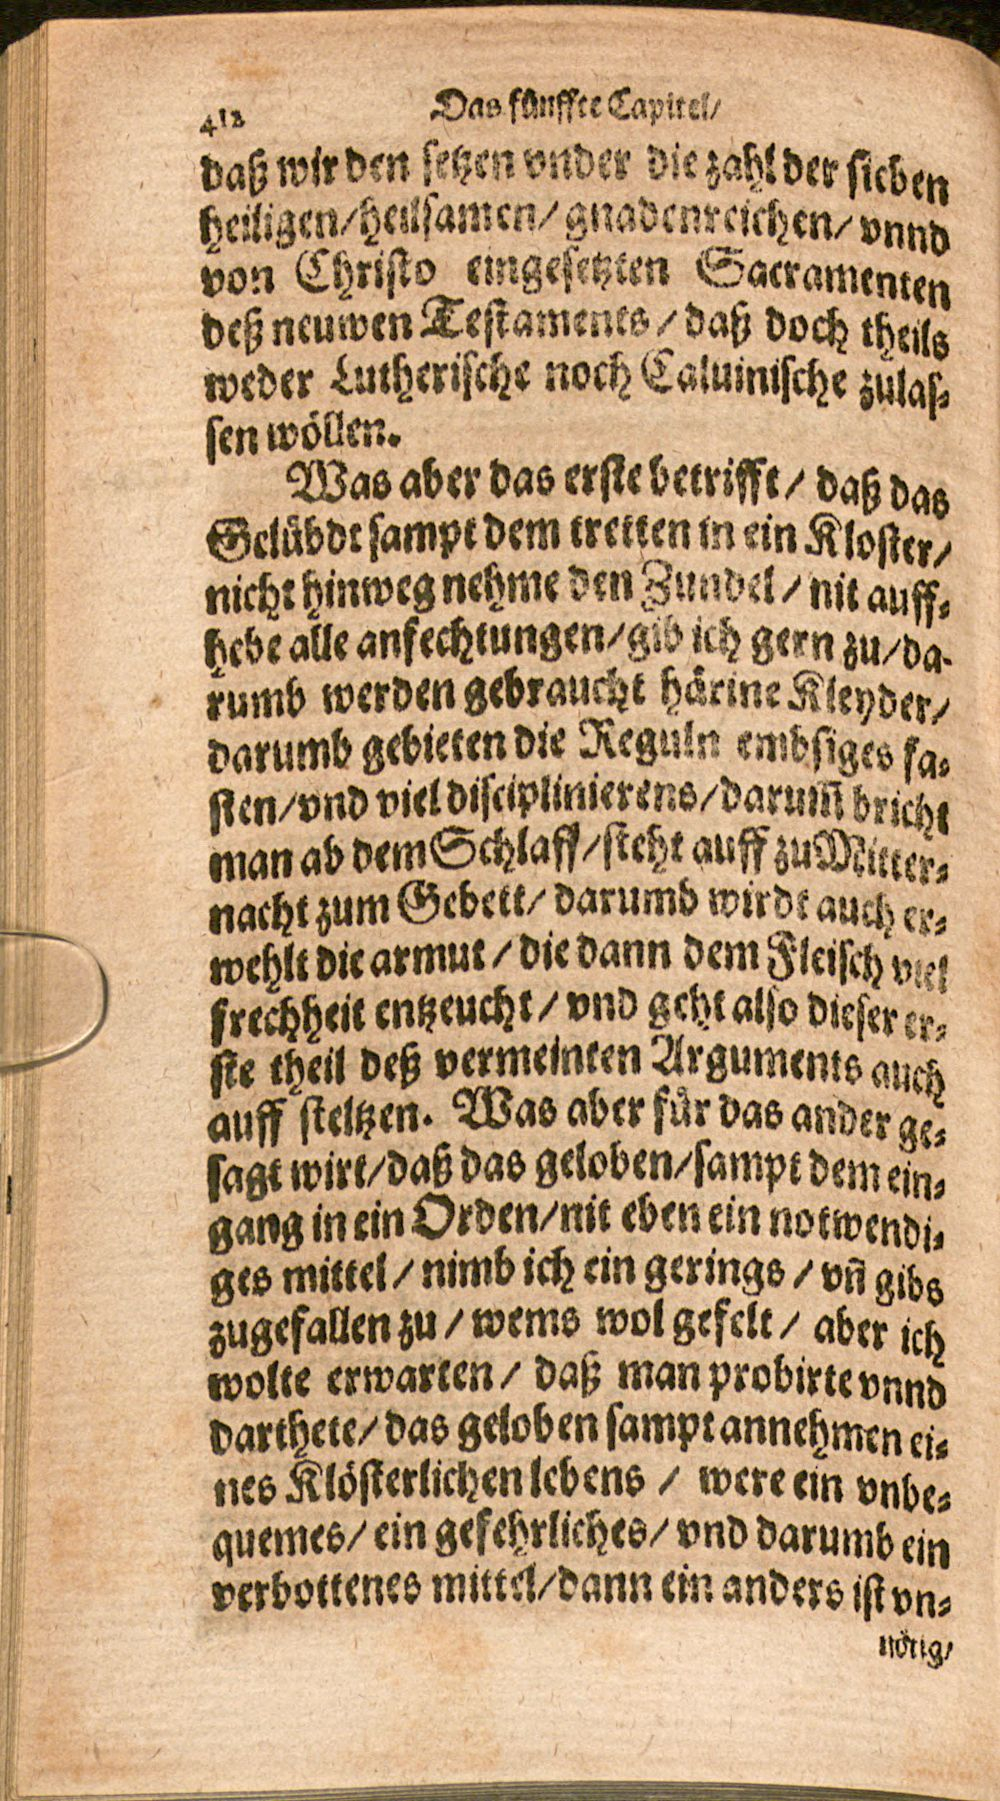 412 Das fünffte Capitel/
daß wir den setzen vnder die zahl der sieben
heiligen/heilsamen/ gnadenreichen/ vnnd
von Christo eingesetzten Sacramenten
deß neuwen Testaments / daß doch theils
weder Lutherische noch Caluinische zulas⸗
sen wöllen.
Was aber das erste betrifft/ daß das
Gelübdt sampt dem tretten in ein Kloster/
nicht hinweg nehme den Zundel / nit auff⸗
hebe alle anfechtungen/gib ich gern zu/da⸗
rumb werden gebraucht härine Kleyder/
darumb gebieten die Reguln embsiges fa⸗
sten/vnd viel disciplinierens/darum̃ bricht
man ab dem Schlaff/steht auff zu Mitter⸗
nacht zum Gebett/ darumb wirdt auch er⸗
wehlt die armut / die dann dem Fleisch viel
frechheit entzeucht/ vnd geht also dieser er⸗
ste theil deß vermeinten Arguments auch
auff steltzen. Was aber für das ander ge⸗
sagt wirt/daß das geloben/sampt dem ein⸗
gang in ein Orden/nit eben ein notwendi⸗
ges mittel / nimb ich ein gerings / vñ gibs
zugefallen zu / wems wol gefelt / aber ich
wolte erwarten / daß man probirte vnnd
darthete/ das geloben sampt annehmen ei⸗
nes Klösterlichen lebens / were ein vnbe⸗
quemes/ ein gefehrliches/ vnd darumb ein
verbottenes mittel/dann ein anders ist vn⸗
nötig/